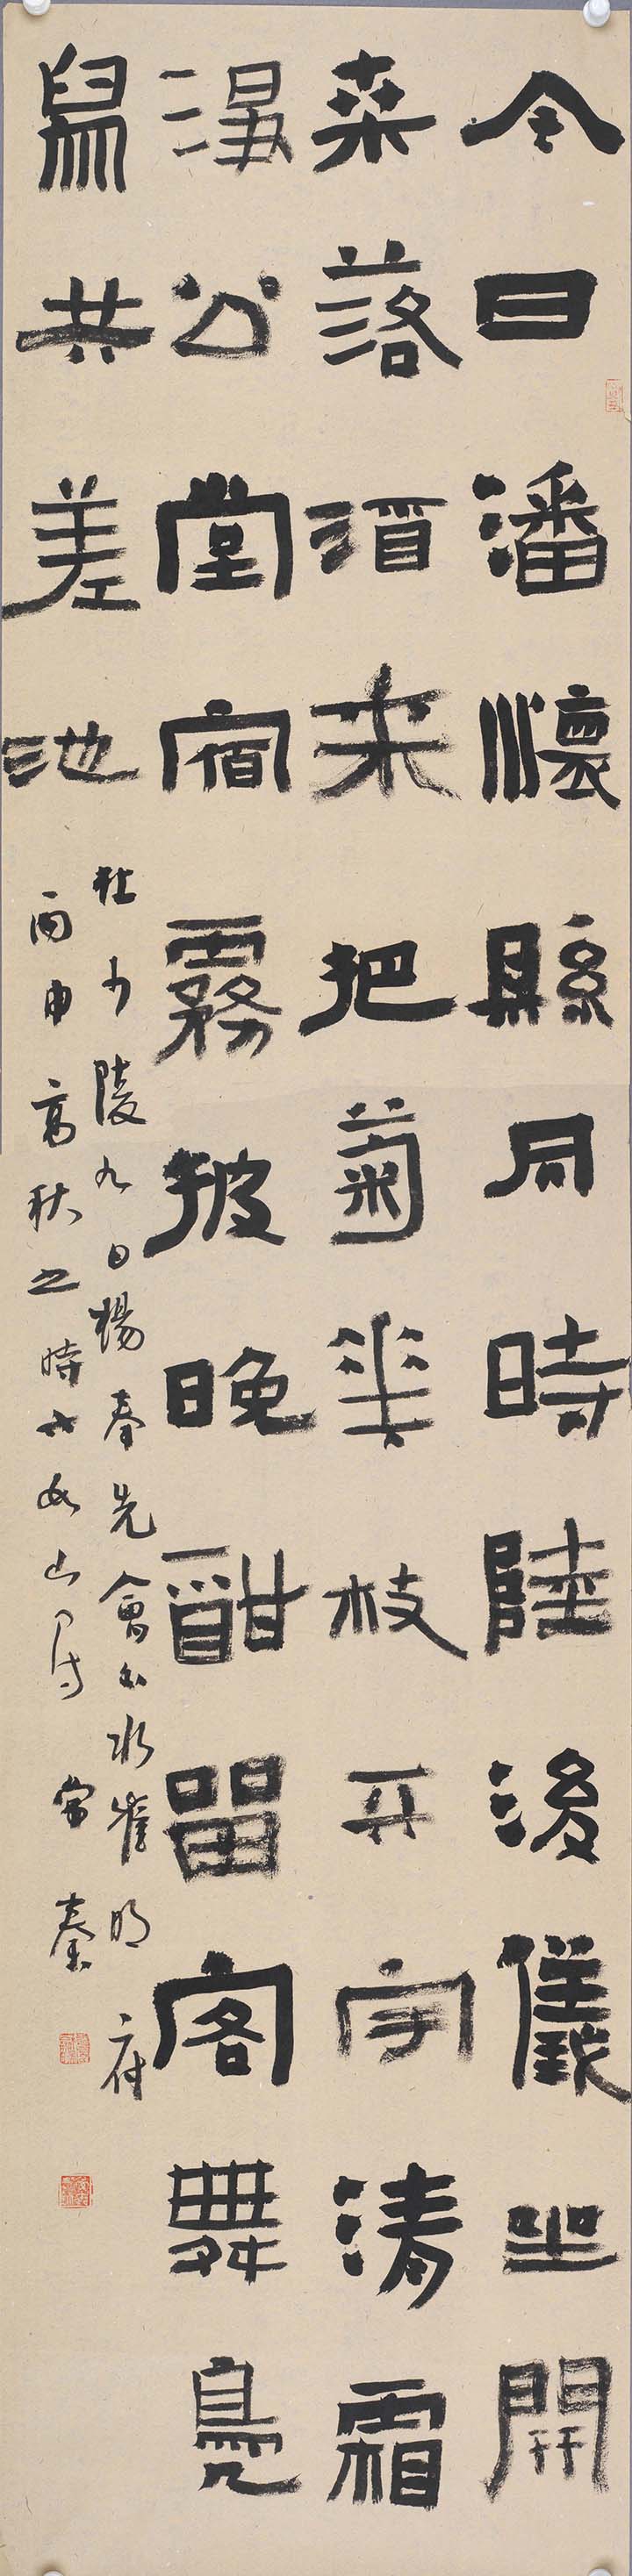 今日潘懷縣同時陸浚儀坐開
桑落酒来把菊華枝天宇清霜
淨公堂宿霧披晚酣留客舞鳧
舄共差池
杜少陵九日楊奉先會白水崔明府
丙申高秋之時